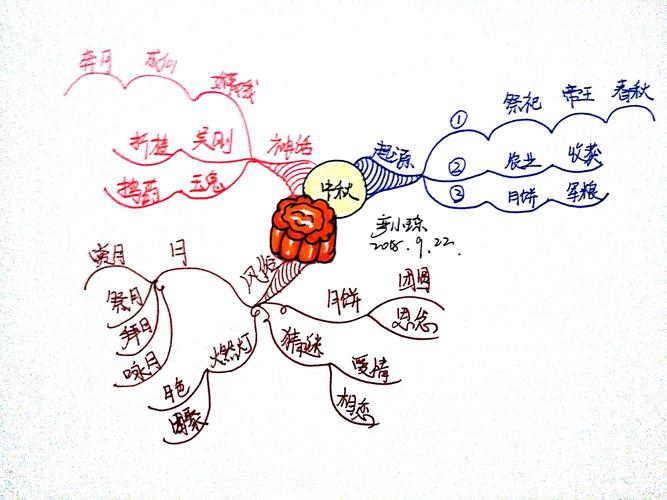 中秋
起源
① 祭祀 帝王 春秋
② 农业 收获
③ 月饼 军粮
神话
嫦娥 成仙 奔月
吴刚 折桂
玉兔 捣药
风俗
月
赏月
祭月
拜月
咏月
燃灯
月色
团聚
猜谜
爱情
相恋
月饼
团圆
思念
2018.9.22.